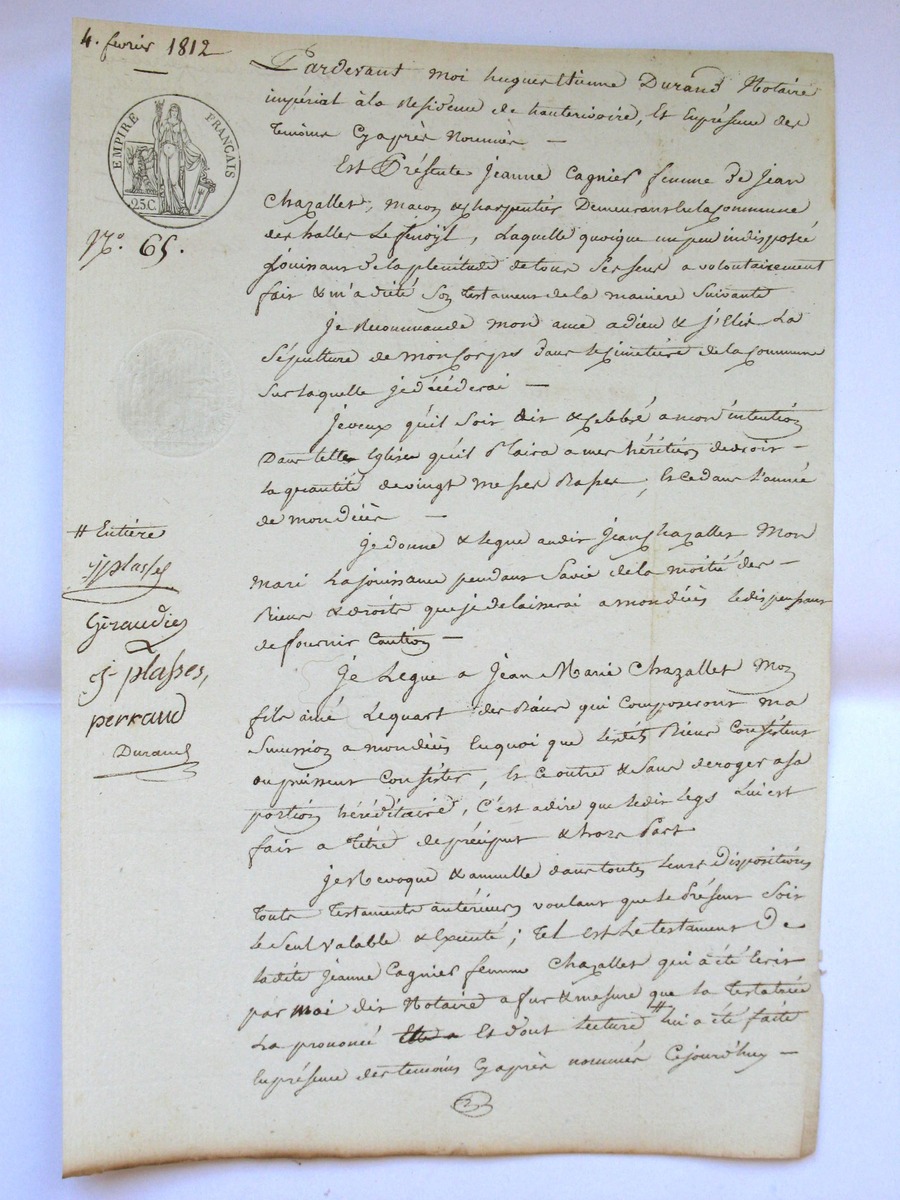 4. fevrier 1812
EMPIRE FRANÇAIS
25C
N.° 65.
Pardevant moi hugues Etienne Durand Notaire
impérial à la Residence de hauterivoire, Et En présence des
temoins Cyaprès Nommés —
Est Présente Jeanne Cagnier femme de Jean
Chazallet, macon & charpentier Demeurant de la Commune
des halles Le fenoÿl, Laquelle quoique un peu indisposée
Jouissant de la plenitude de tous ses sens a volontairement
fait & m'a dicté Son testament de la maniere Suivante
Je Recommande mon ame a dieu & j'Elis La
Sépulture de mon Corps dans le Cimetière de la Commune
Sur laquelle je décéderai —
Je veux qu'il Soit dit & Celebré a mon intention
Dans telle Eglise qu'il Plaira a mes héritiers de droit —
La quantité de vingt messes Basses, Et ce dans L'année
de mon décès —
Je donne & legue audit Jean Chazallet Mon
mari La jouissance pendant Sa vie de la moitié des —
Biens & droits que je delaisserai a mon décès le dispensant
de fournir Caution —
Je Legue a Jean Marie Chazallet Mon
fils ainé Le quart des Biens qui Composeront ma
Succession a mon décès En quoi que lesdits Biens Consistent
ou puissent Consister, Et ce outre & Sans deroger a sa
portion héréditaire, C'est a dire que ledit Legs Lui est
fait a titre de préciput & hors Part
Je Revoque & annulle dans toutes Leurs dispositions
Touts Testaments antérieurs voulant que le Présent Soit
Le Seul valable & Executé; tel est le testament De
Ladite Jeanne Cagnier femme Chazallet qui a été Ecrit
par moi dit Notaire a fur & mesure que la Testatrice
La prononcé Et dont Lecture # lui a été faite
En présence des temoins Cyaprès nommés Cejourd'huy —
# Entière
jj plasses
Giraudier
j plasses,
perraud
Durand